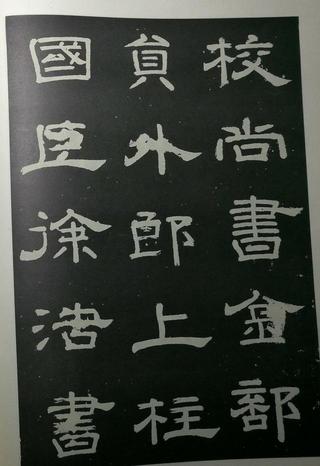 校尚書金部
員外郎上柱
國臣徐浩書